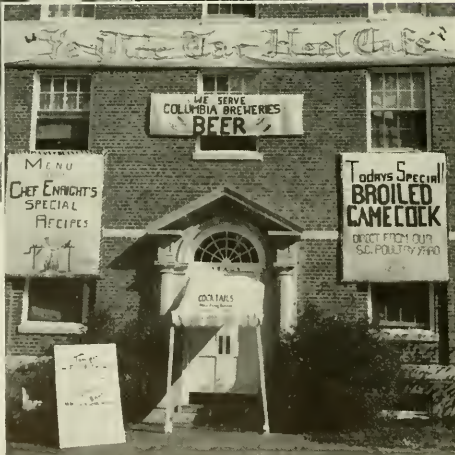 "Ye Olde Tar Heel Cafe"
WE SERVE
COLUMBIA BREWERIES
BEER
MENU
CHEF ENRIGHT'S
SPECIAL
RECIPES
TODAYS SPECIAL!
BROILED
GAMECOCK
DIRECT FROM OUR
S.C. POULTRY YARD
COCKTAILS